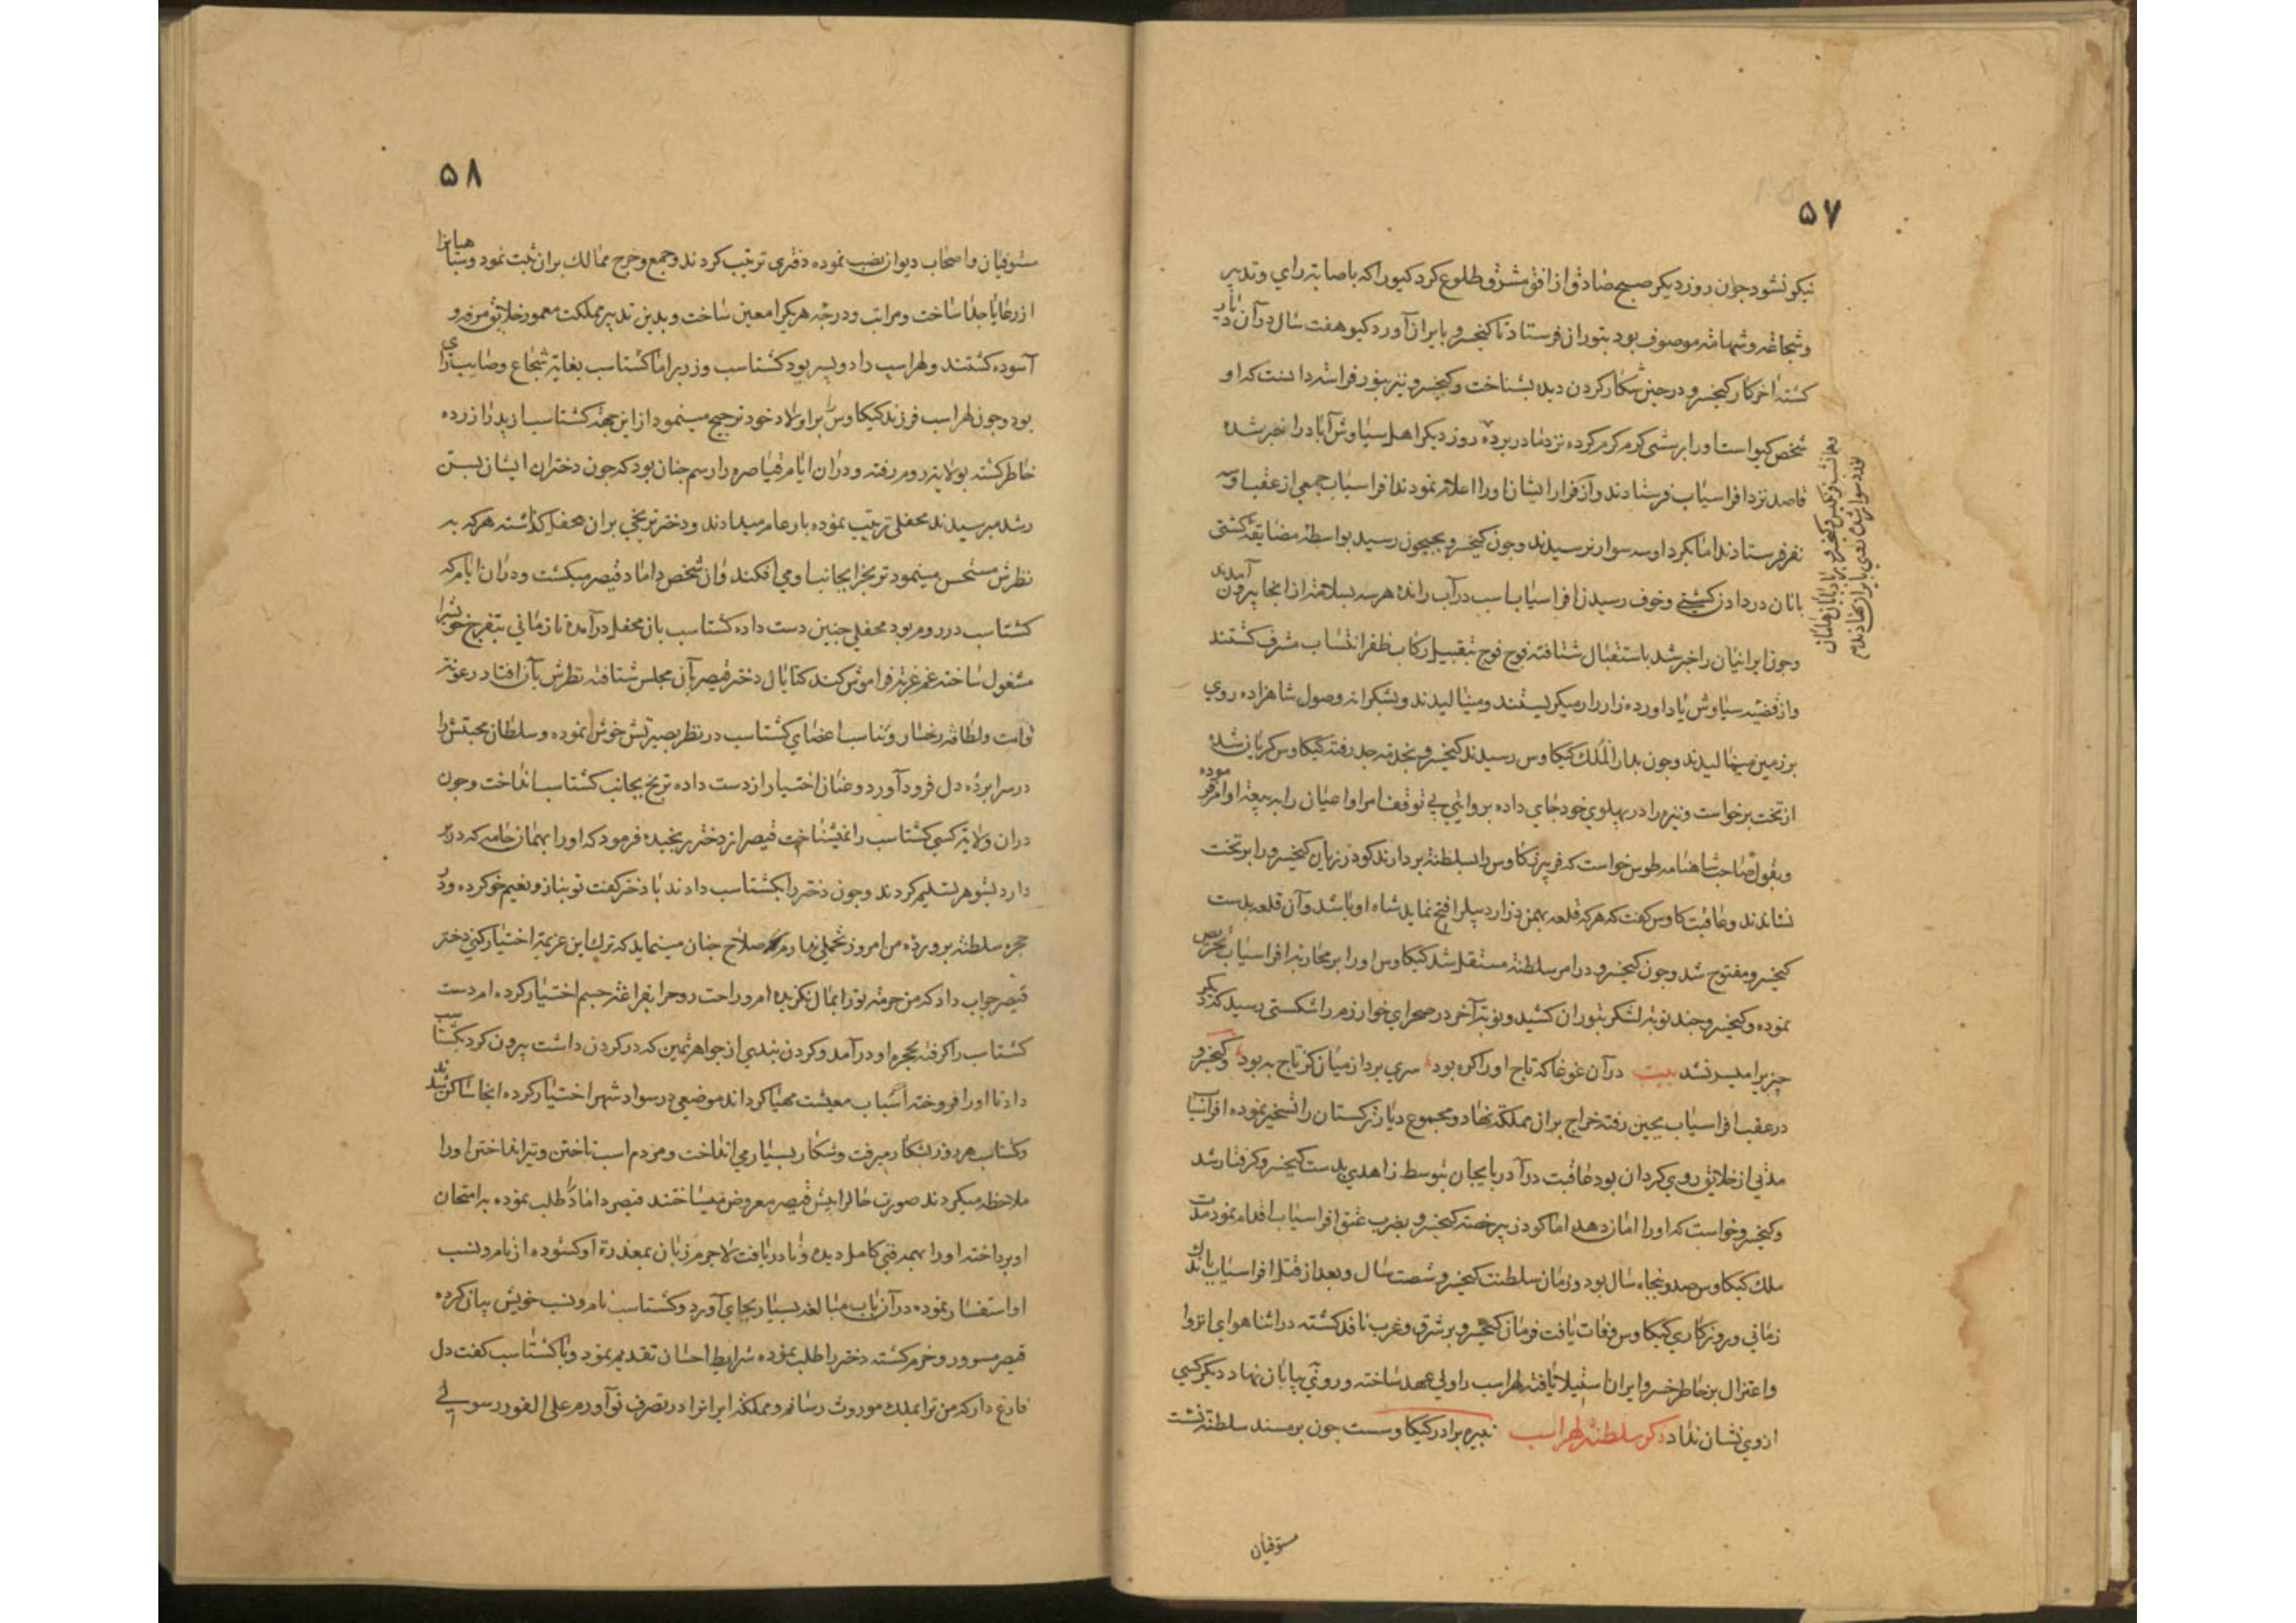 ۵۷
نیکو نشود چون روز دیکر صبح صادق از افق مشرق طلوع کرد کیو را که باصابة رای و تدبیر
و شجاعة و شهامة موصوف بود بتوران فرستاد تا کیخسرو بایران آورد کیو هفت سال در آن دیار
کشته آخر کار کیخسرو در حین شکار کردن دید بشناخت و کیخسرو نیز بنور فراسة دانست که او
شخص کیو است او را برسشی کرم کرم کرده نزد مادر برده روز دیکر اهل سیاوش آباد را خبر شده
قاصد نزد افراسیاب فرستادند و از فرار ایشان او را اعلام نمودند افراسیاب جمعی از عقب او سه
نفر فرستادند اما بکرد او سه سوار نرسیدند و چون کیخسرو بجیحون رسید بواسطه مضایقه کشتی
بانان در دادن کشتی و خوف رسیدن افراسیاب اسب در آب رانده هر سه بسلامة از انجا بیرون آمدند
و چون ایرانیان را خبر شد باستقبال شتافته فوج فوج بتقبیل رکاب ظفر انتساب مشرف کشتند
و از قضیه سیاوش یاد آورده زار زار میکریستند و مینالیدند و بشکرانه وصول شاهزاده روی
بر زمین میمالیدند و چون بدار الملک کیکاوس رسیدند کیخسرو بخدمة جد رفته کیکاوس کریان شده
از تخت برخواست و نبیره را در پهلوی خود جای داده بروایتی بی توقف امرا و اعیان را به بیعة او امر فرموده
و بقول صاحب شاهنامه طوس خواست که فریبرز کاوس را بسلطنة بردارند کودرزیان کیخسرو را بر تخت
نشاندند و عاقبت کاوس کفت که هر که قلعه بهمن دز اردبیل را فتح نماید شاه او باشد و آن قلعه بدست
کیخسرو مفتوح شد و چون کیخسرو در امر سلطنة مستقل شد کیکاوس او را بر محاربة افراسیاب تحریص
نموده و کیخسرو چند نوبة لشکر بتوران کشید و نوبة آخر در صحرای خوارزم را شکستی رسید که دیکر
چیز برا میسر نشد بیت در آن غوغا که تاج او را کره بود سری برد از میان کز تاج به بود و کیخسرو
در عقب افراسیاب بچین رفته خراج بر ان مملکة نهاد و مجموع دیار ترکستان را تسخیر نموده افراسیاب
مدتی از خلایق روی کردان بود عاقبت در آذربایجان بتوسط زاهدی بدست کیخسرو کرفتار شد
و کیخسرو خواست که او را امان دهد اما کودرز بی رخصة کیخسرو بضرب عنق افراسیاب اقدام نمود مدت
ملک کیکاوس صد و پنجاه سال بود و زمان سلطنت کیخسرو شصت سال و بعد از قتل افراسیاب باندک
زمانی و روزکاری کیکاوس وفات یافت فرمان کیخسرو بر شرق و غرب نافذ کشته در اثنا هوای انزوا
و اعتزال بر خاطر خسرو ایران استیلا یافته لهراسب را ولی عهد ساخته و روئی ببابان نهاد دیکر کسی
از وی نشان نداد ذکر سلطنة لهراسب نبیره برادر کیکاوسست چون بر مسند سلطنة نشست
مستوفیان
۵۸
مستوفیان و اصحاب دیوان نصب نموده دفتری ترتیب کردند و جمع و خرج ممالک بران ثبت نمود و سپاهیانرا
از رعایا جدا ساخت و مراتب و درجه هر یکرا معین ساخت و بدین تدبیر مملکت معمور خلایق مرفه و
آسوده کشتند و لهراسب را دو پسر بود کشتاسب و زریر اما کشتاسب بغایة شجاع و صایب رای
بود و چون لهراسب فرزند کیکاوس را بر اولاد خود ترجیح مینمود از این جهة کشتاسب از پدر آزرده
خاطر کشته بولایة روم رفته و دران ایام قیاصره را رسم چنان بود که چون دختران ایشان بسن
رشد میرسیدند محفلی ترتیب نموده بار عام میدادند و دختر ترنجی بران محفل کذاشته هر که به
نظرش مستحسن مینمود ترنج را بجانب او می افکند و ان شخص داماد قیصر میکشت و دران ایام که
کشتاسب در روم بود محفلی چنین دست داده کشتاسب بان محفل درآمده تا زمانی بتفرج خویشرا
مشغول ساخته غم غربة فراموش کند کتایان دختر قیصر بآن مجلس شتافته نظرش بآن افتاد رعونة
قامت و لطافة رخسار و تناسب اعضای کشتاسب در نظر بصیرتش خوش نموده و سلطان محبتش را
در سرا پرده دل فرود آورد و عنان اختیار از دست داده ترنج بجانب کشتاسب انداخت و چون
دران ولایة کسی کشتاسب را نمیشناخت قیصر از دختر رنجیده فرمود که او را بهمان جامه که در بر
دارد بشوهر تسلیم کردند و چون دختر را بکشتاسب دادند با دختر کفت تو بناز و نعیم خو کرده و در
حجره سلطنة پرورده من امروز تحملی ندارم صلاح چنان مینماید که ترک این عزیمة اختیار کنی دختر
قیصر جواب داد که من حرمة تورا بمال نکزیده ام و راحت روح را بفراغة جسم اختیار کرده ام دست
کشتاسب را کرفته بحجره او درآمد و کردن بندی از جواهر ثمین که در کردن داشت بیرون کرد بکشتاسب
داد تا او را فروخته اسباب معیشت مهیا کرداند موضعی در سواد شهر اختیار کرده انجا ساکن شدند
و کشتاسب هر روز بشکار میرفت و شکار بسیار می انداخت و مردم اسب تاختن و تیر انداختن او را
ملاحظه میکردند صورت حال را پیش قیصر معروض میساختند قیصر داماد را طلب نموده به امتحان
او پرداخته او را بهمه فنی کامل دیده و دریافت لاجرم زبان بمعذرة او کشوده از نام و نسب
او استفسار نموده در آن باب مبالغه بسیار بجای آورد و کشتاسب نام و نسب خویش بیان کرده
قیصر مسرور و خرم کشته دختر را طلب نموده شرایط احسان تقدیم نمود و با کشتاسب کفت دل
فارغ دار که من ترا بملک موروث رسانم و مملکة ایرانرا در تصرف تو آورم علی الفور رسولی